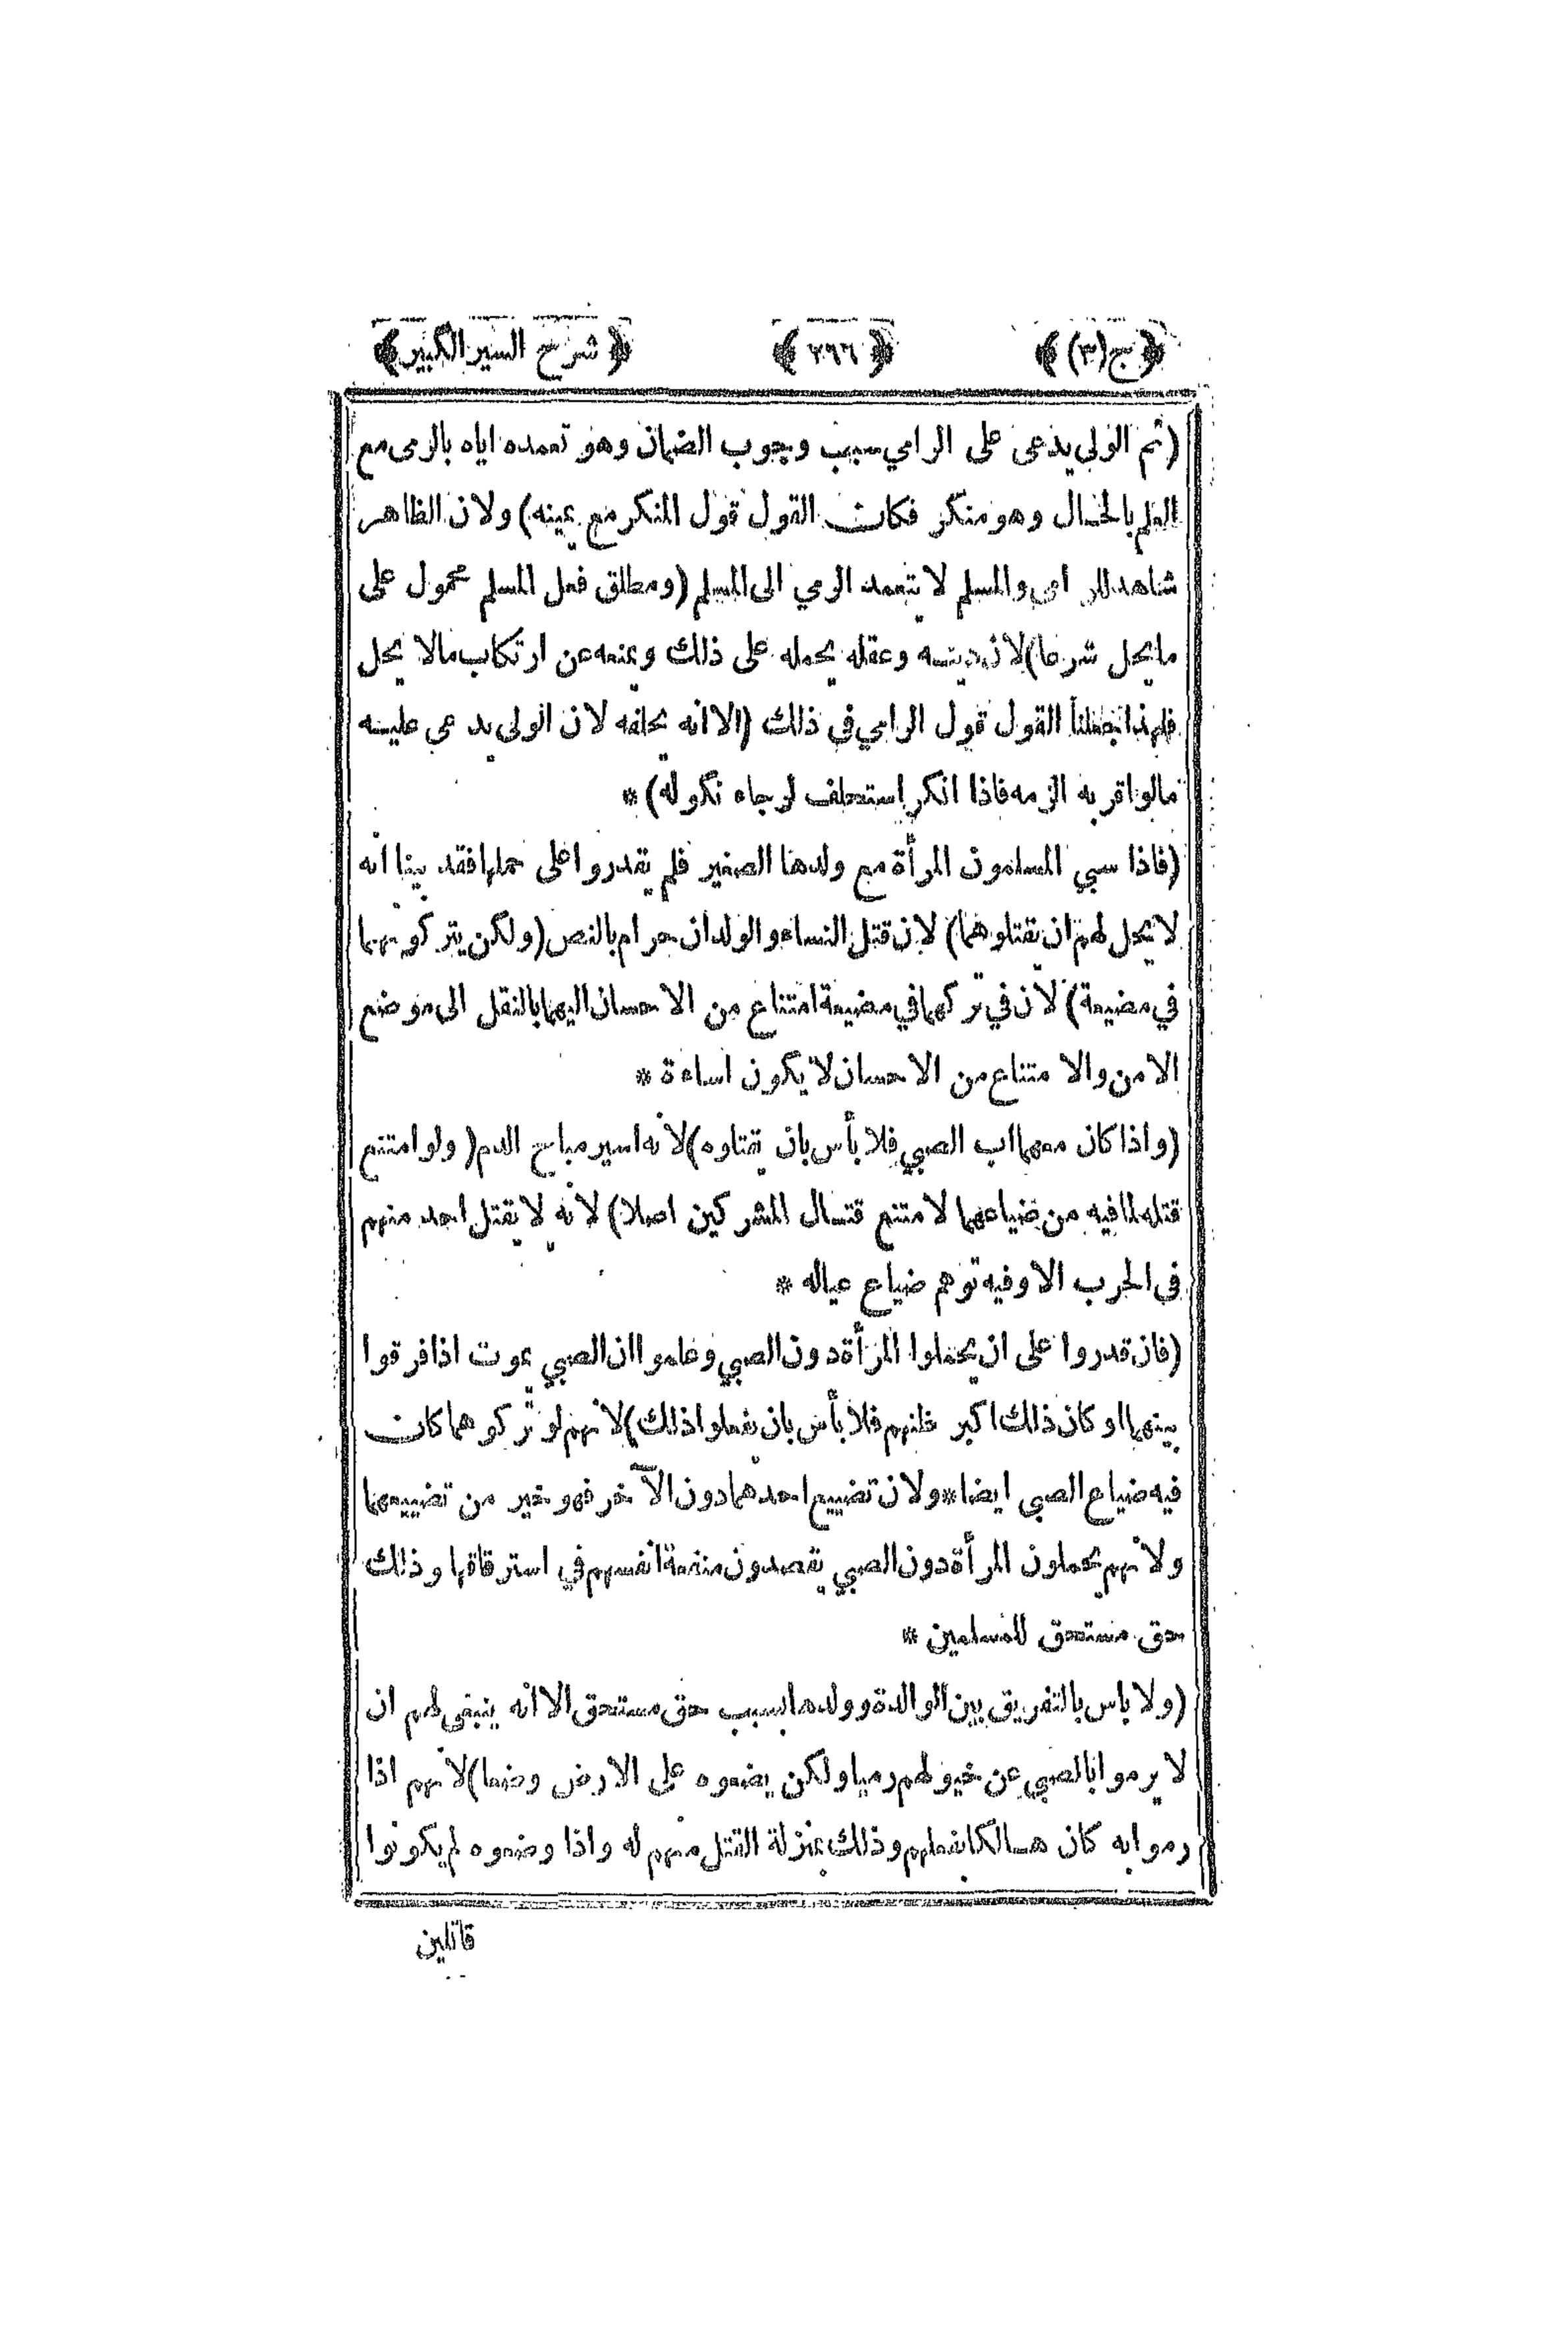 ﴿ج(٣)﴾ ﴿٢٩٦﴾ ﴿شرح السير الكبير﴾
(ثم الولى يدعى على الرامي سبب وجوب الضمان وهو تعمده اياه بالرمى مع
العلم بالحال وهو منكر فكان القول قول المنكر مع يمينه) ولان الظاهر
شاهد للرامى والمسلم لا يتعمد الرمي الى المسلم (ومطلق فعل المسلم محمول على
ما يحل شرعا) لان دينه وعقله يحمله على ذلك ويمنعه عن ارتكاب مالا يحل
فلهذا جعلنا القول قول الرامي في ذلك (الا انه يحلفه لان الولى يدعى عليه
مالو اقر به الزمه فاذا انكر استحلف لرجاء نكوله) *
(فاذا سبي المسلمون المرأة مع ولدها الصغير فلم يقدروا على حملها فقد بينا انه
لا يحل لهم ان يقتلوهما) لان قتل النساء والولدان حرام بالنص (ولكن يتركونهما
في مضيعة) لان في تركهما في مضيعة امتناع من الاحسان اليهما بالنقل الى موضع
الامن والامتناع من الاحسان لا يكون اساءة *
(واذا كان معهما اب الصبي فلا بأس بان يقتلوه) لانه اسير مباح الدم (ولو امتنع
قتله لما فيه من ضياعهما لامتنع قتال المشركين اصلا) لانه لا يقتل احد منهم
في الحرب الا وفيه توهم ضياع عياله *
(فان قدروا على ان يحملوا المرأة دون الصبي وعلموا ان الصبي يموت اذا فرقوا
بينهما او كان ذلك اكبر ظنهم فلا بأس بان يفعلوا ذلك) لانهم لو تركوهما كان
فيه ضياع الصبي ايضا * ولان تضييع احدهما دون الآخر فهو خير من تضييعهما
ولانهم يحملون المرأة دون الصبي يقصدون منفعة انفسهم في استرقاقها وذلك
حق مستحق للمسلمين *
(ولا باس بالتفريق بين الوالدة وولدها بسبب حق مستحق الا انه ينبغى لهم ان
لا يرموا بالصبي عن خيولهم رميا ولكن يضعوه على الارض وضعا) لانهم اذا
رموا به كان هالكا بفعلهم وذلك بمنزلة القتل منهم له واذا وضعوه لم يكونوا
قاتلين